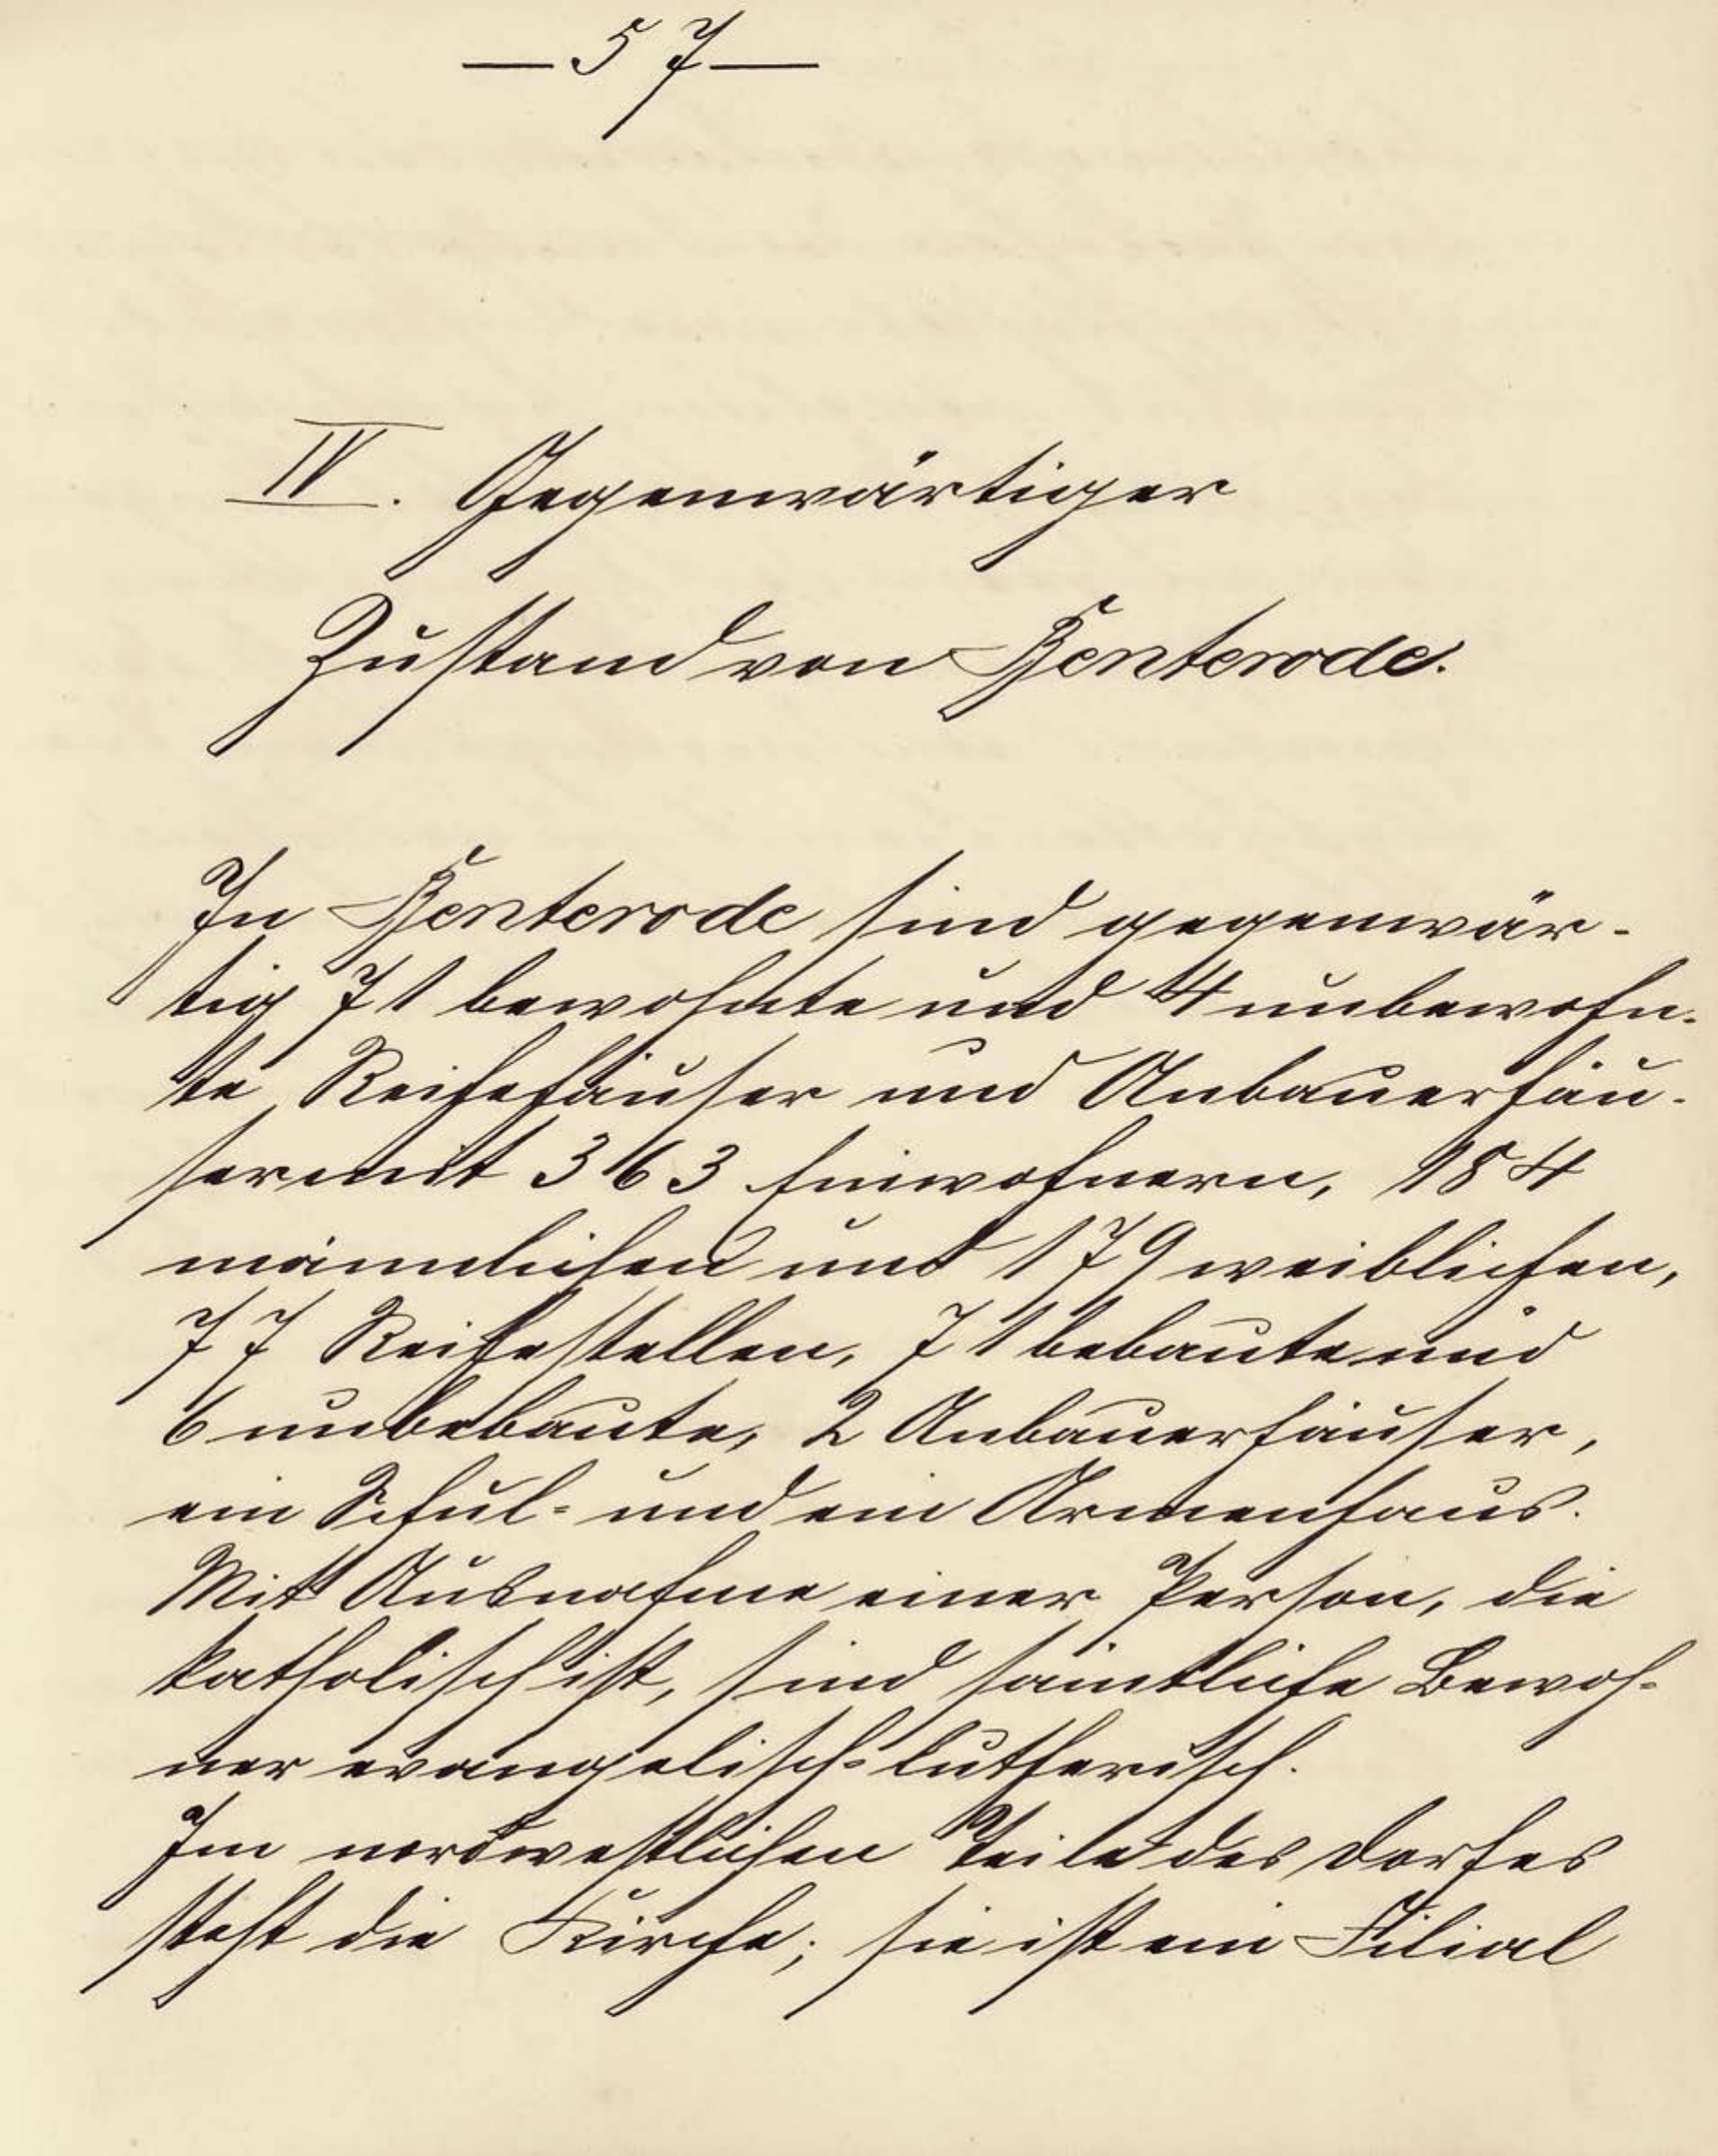 — 57 —
IV. Gegenwärtiger
Zustand von Benterode.
In Benterode sind gegenwär-
tig 71 bewohnte und 4 unbewohn-
te Reihehäuser und Anbauerhäu-
ser mit 363 Einwohnern, 184
männlichen und 179 weiblichen,
77 Reihestellen, 71 bebaute und
6 unbebaute, 2 Anbauerhäuser,
ein Schul- und ein Armenhaus.
Mit Ausnahme einer Person, die
katholisch ist, sind sämtliche Bewoh-
ner evangelisch-lutherisch.
Im nordwestlichen Teile des Dorfes
steht die Kirche; sie ist ein Filial